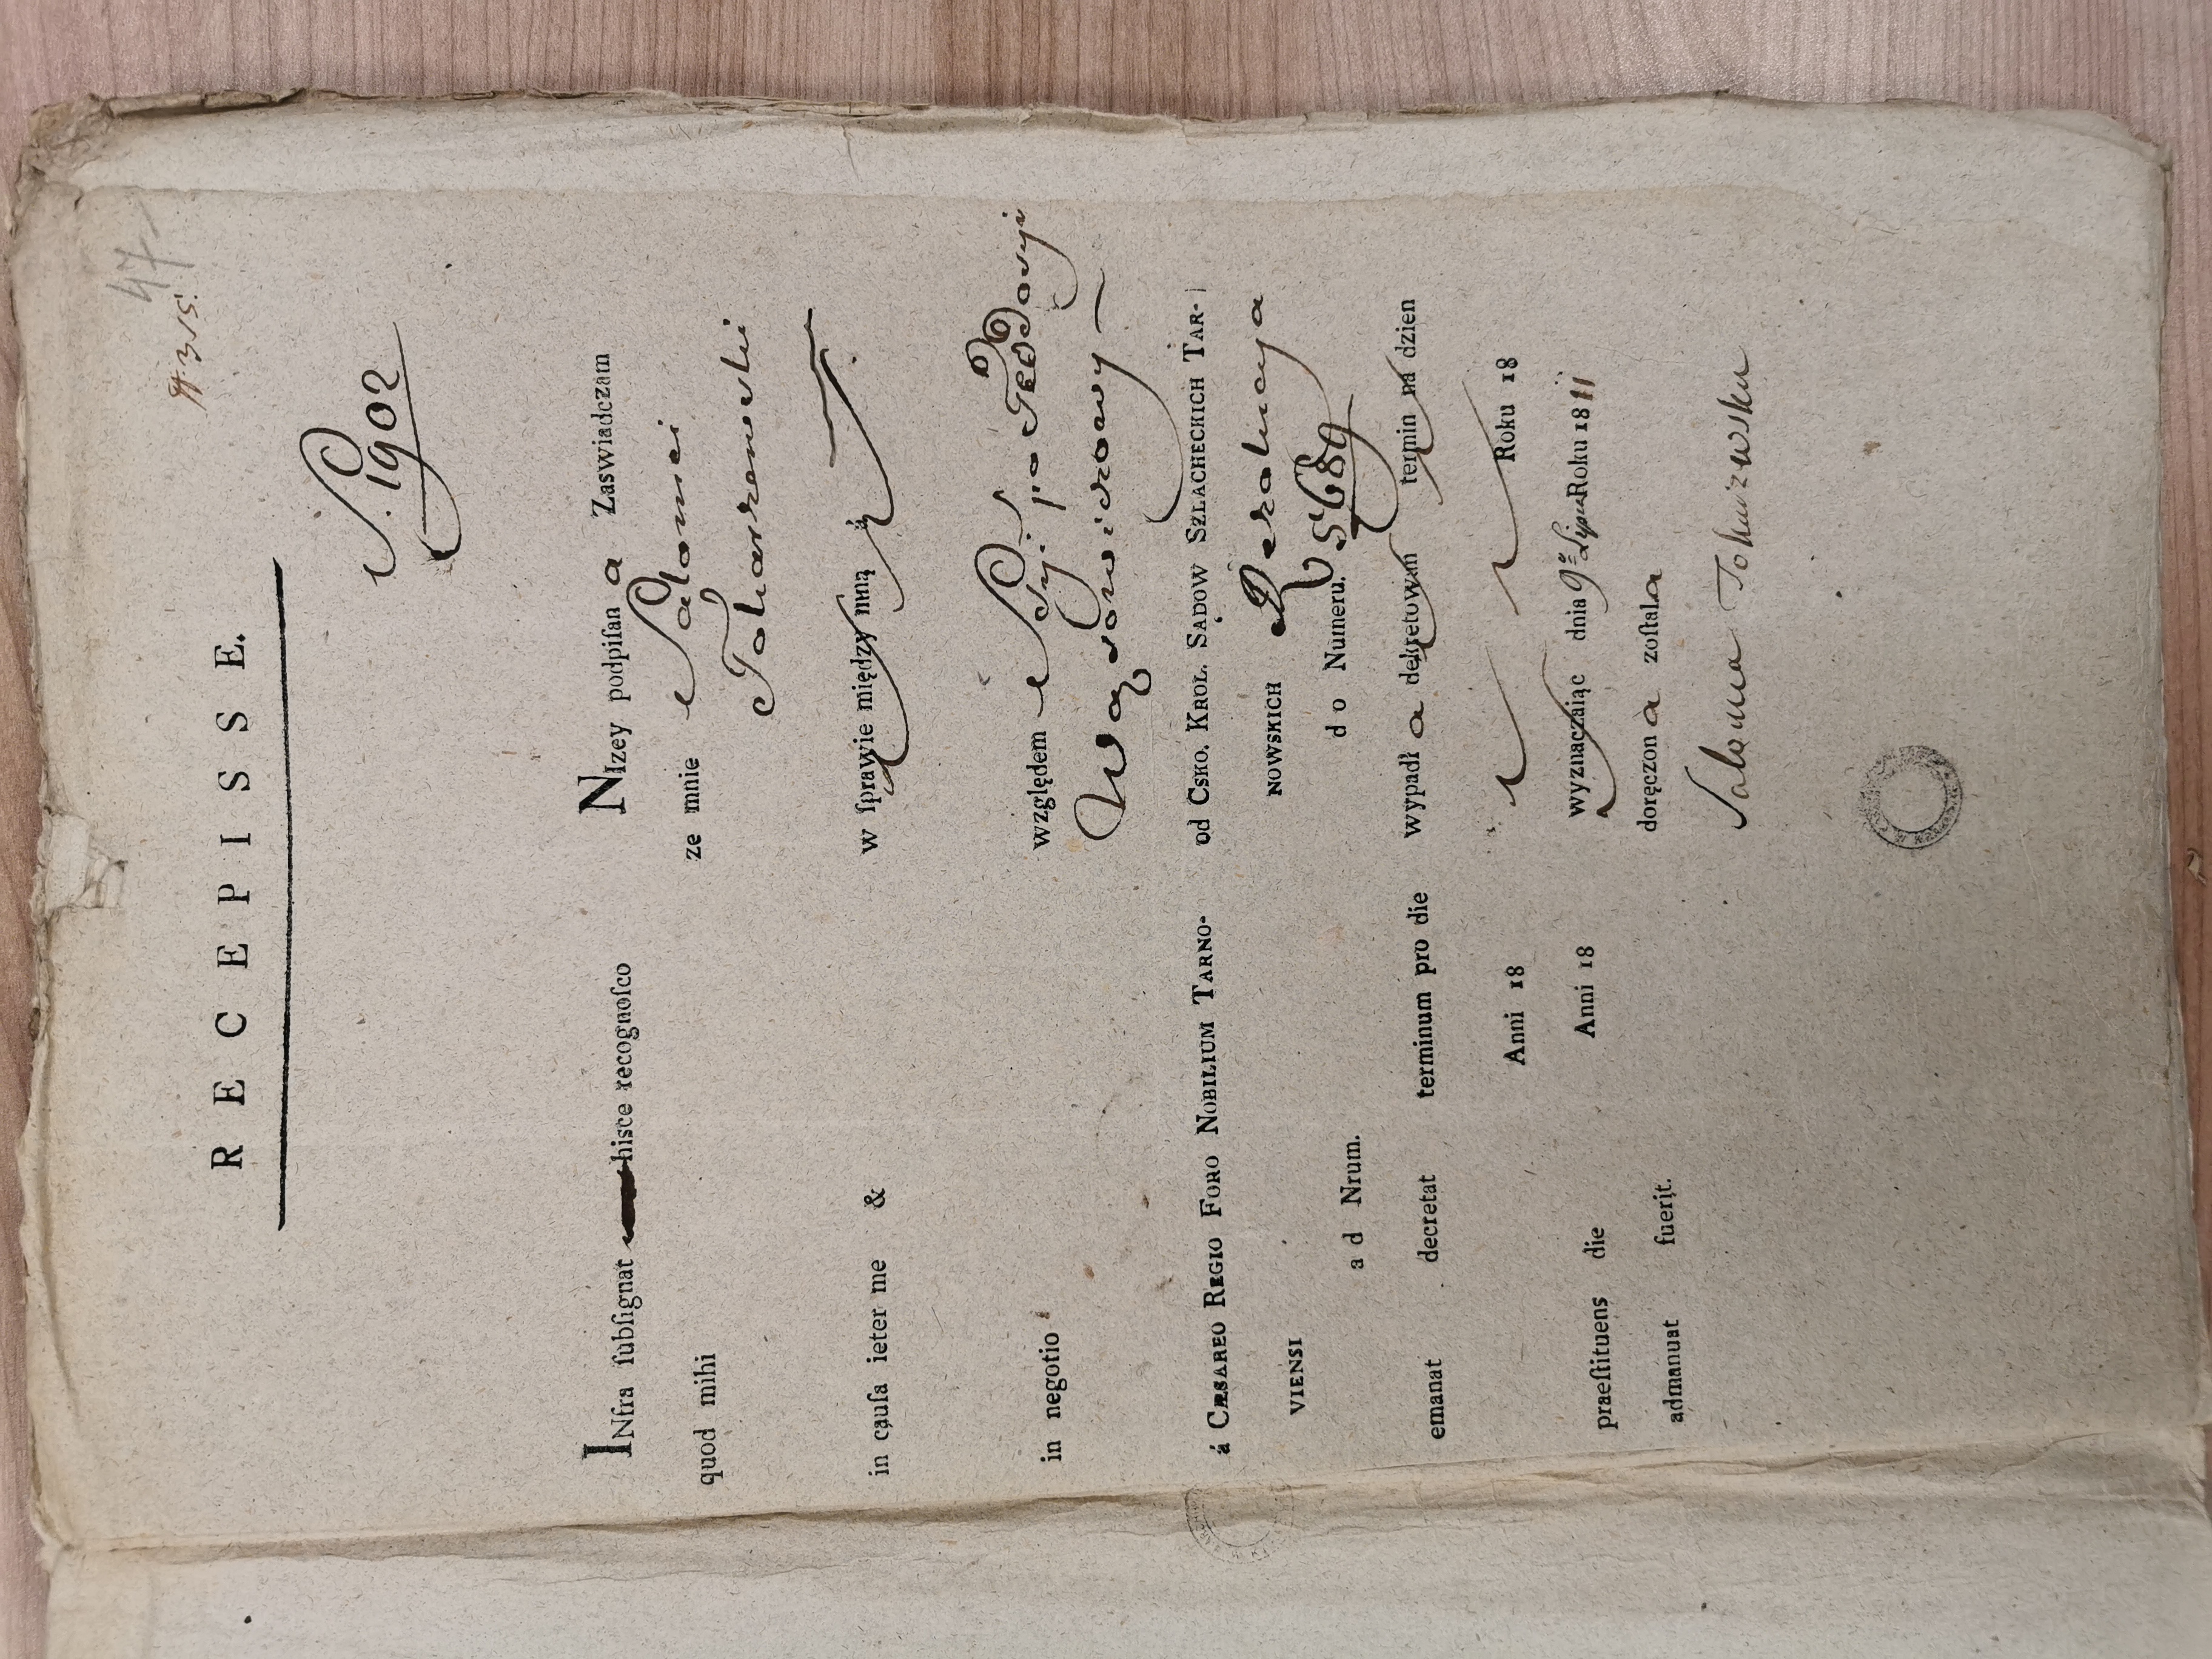 47
RECEPISSE.
S. 1902
INfra ſubſignat hisce recognoſco
quod mihi
in cauſa ieter me &
in negotio
á CÆSAREO REGIO FORO NOBILIUM TARNO-
VIENSI
ad Nrum.
emanat decretat terminum pro die
Anni 18
praeſtituens die Anni 18
admanuat fuerit.
NIzey podpiſan a Zaswiadczam
ze mnie Salomei
Tokarzewski
w ſprawie między mną à
względem Syi. po Teodoryi
Wąsowiczowy
od CSKO. KROL. SĄDOW SZLACHECKICH TAR-
NOWSKICH Rezolucya
do Numeru. 5689
wypadł a dekretowan termin na dzien
Roku 18
wyznaczaiąc dnia 9º Lipca Roku 1811
doręczon a zoſtala
Salomea Tokarzewska